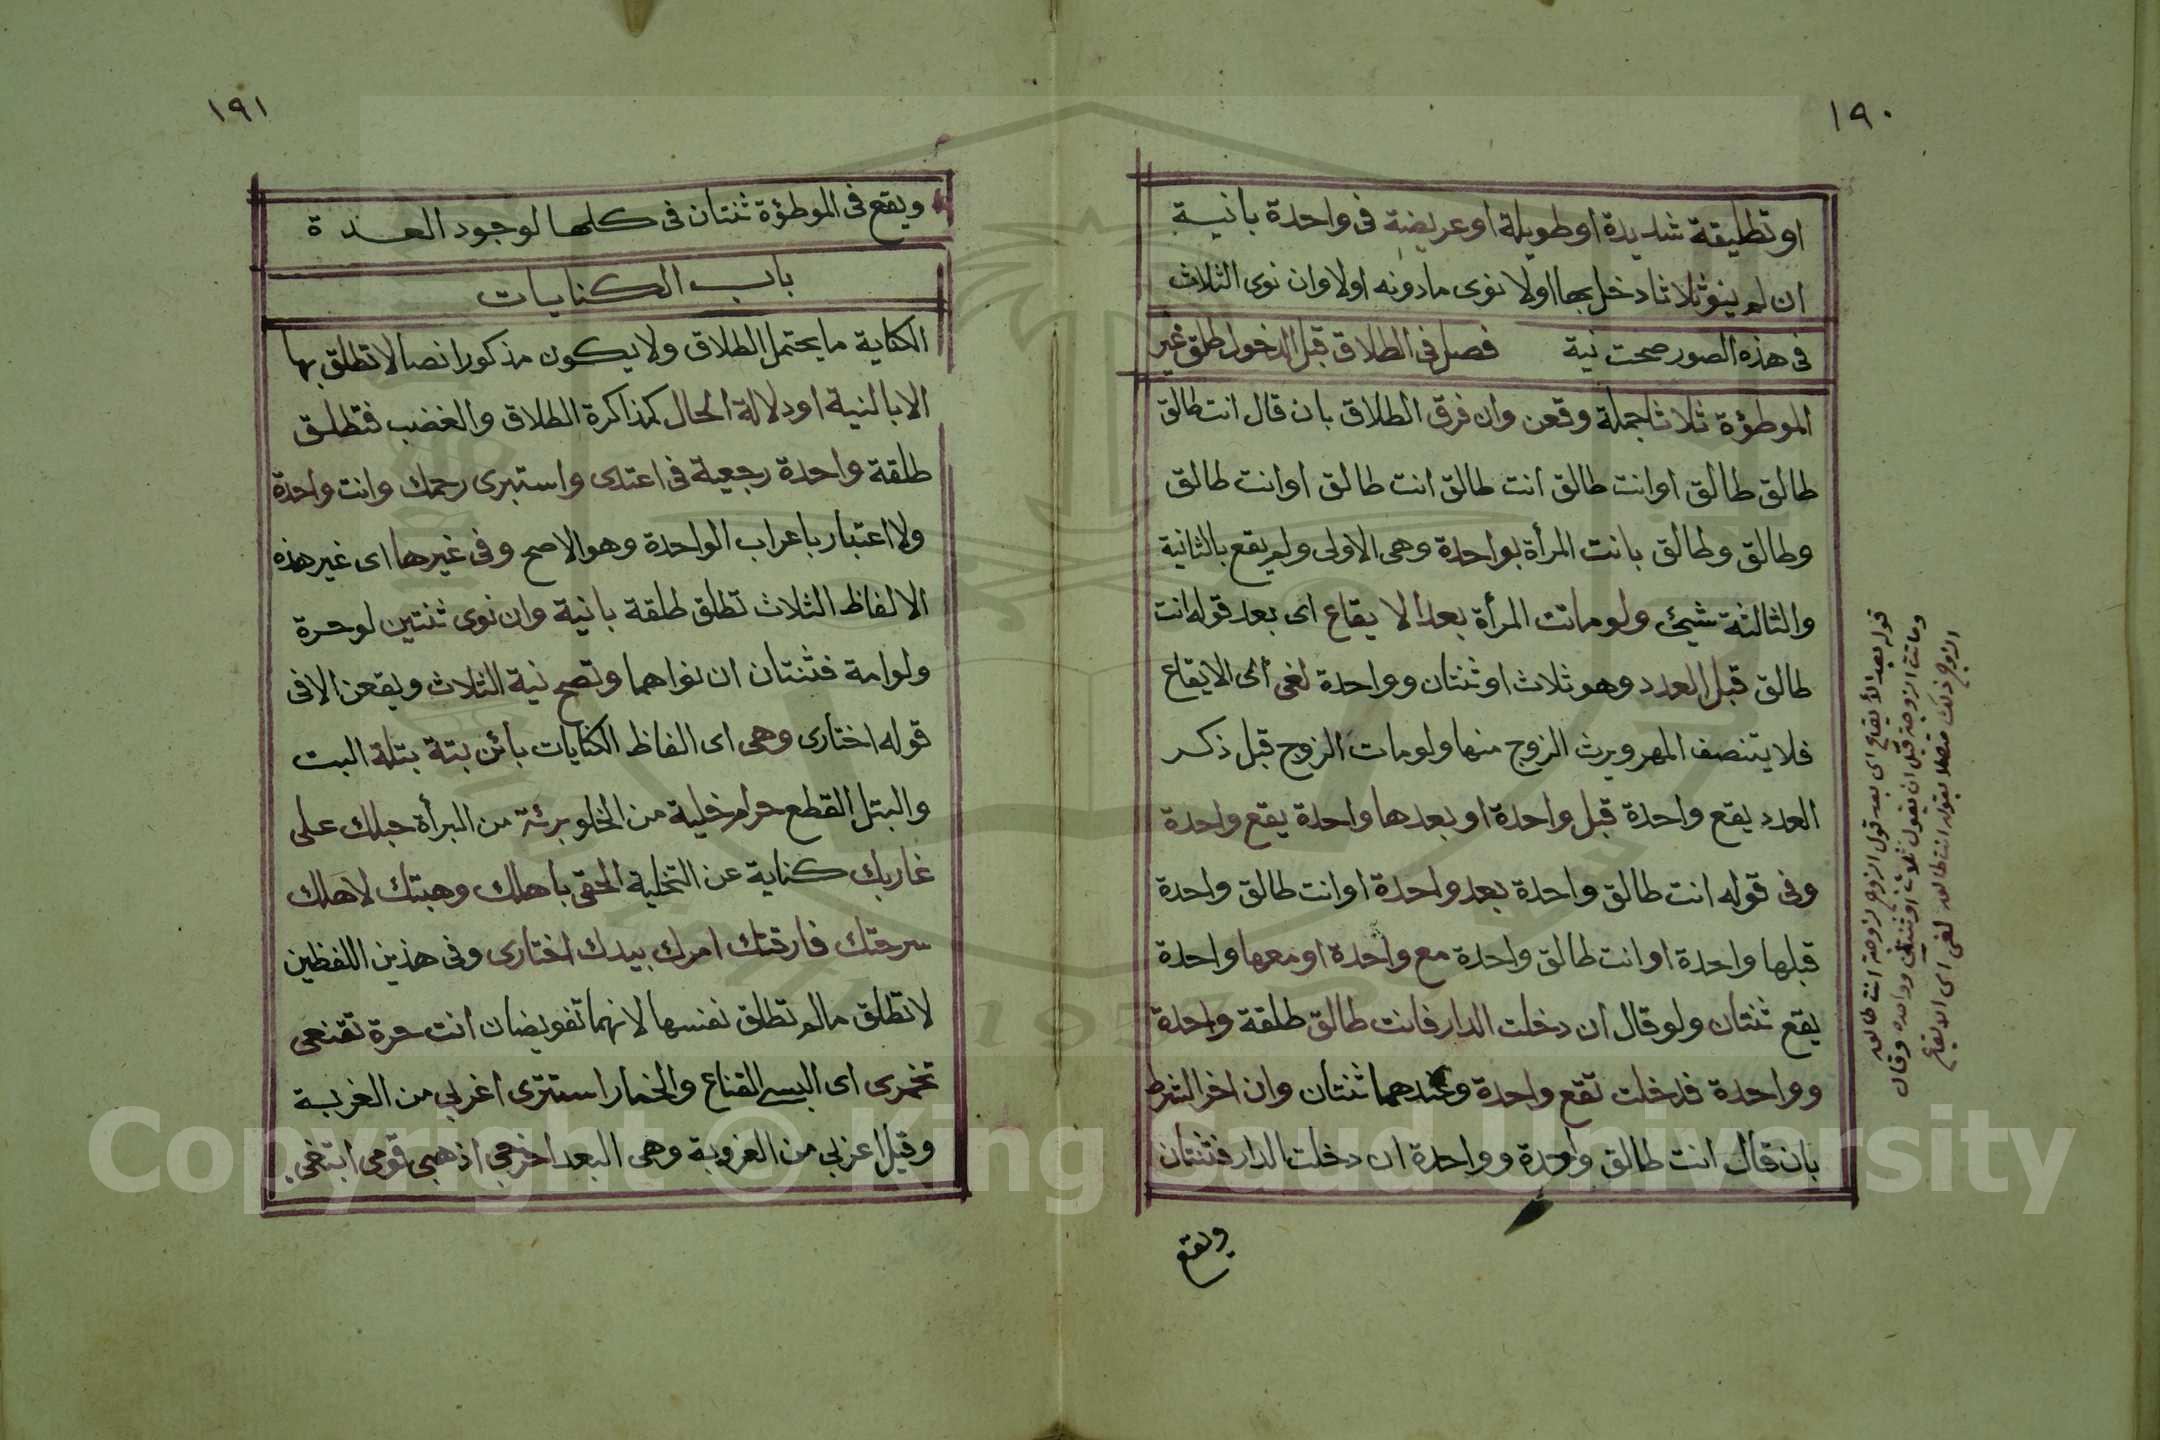 ١٩٠
او تطليقة شديدة او طويلة او عريضة فى واحدة بانية
ان لم ينو ثلاثا دخل بها اولا نوى مادونه اولا وان نوى الثلاث
فى هذه الصور صحت نية فصل فى الطلاق قبل الدخول طلق غير
الموطؤة ثلاثا جملة وقعن وان فرق الطلاق بان قال انت طالق
طالق طالق او انت طالق انت طالق انت طالق او انت طالق
وطالق وطالق بانت المرأة بواحدة وهى الاولى ولم يقع بالثانية
والثالثة شيئ ولو ماتت المرأة بعد الايقاع اى بعد قوله انت
طالق قبل العدد وهو ثلاث او ثنتان وواحدة لغى اى الايقاع
فلا يتنصف المهر ويرث الزوج منها ولو مات الزوج قبل ذكر
العدد يقع واحدة قبل واحدة او بعدها واحدة يقع واحدة
وفى قوله انت طالق واحدة بعد واحدة او انت طالق واحدة
قبلها واحدة او انت طالق واحدة مع واحدة او معها واحدة
يقع ثنتان ولو قال ان دخلت الدار فانت طالق طلقة واحدة
وواحدة فدخلت تقع واحدة وعندهما ثنتان وان اخر الشرط
بان قال انت طالق واحدة وواحدة ان دخلت الدار فثنتان
ويقع
قوله بعد الايقاع اى بعد قول الزوج لزوجته انت طالق
وماتت الزوجة قبل ان يقول ثلاث او ثنتين وواحدة وقال
الزوج ذلك متصلا بقوله انت طالق لغى اى الايقاع
١٩١
ويقع فى الموطؤة ثنتان فى كلها لوجود العدة
باب الكنايات
الكناية ما يحتمل الطلاق ولا يكون مذكورا نصا لا تطلق بها
الا بالنية او دلالة الحال كمذاكرة الطلاق والغضب فتطلق
طلقة واحدة رجعية فى اعتدى واستبرى رحمك وانت واحدة
ولا اعتبار باعراب الواحدة وهو الاصح وفى غيرها اى غير هذه
الالفاظ الثلاث تطلق طلقة بانية وان نوى ثنتين لو حرة
ولو امة فثنتان ان نواهما وتصح نية الثلاث ويقعن الا فى
قوله اختارى وهى اى الفاظ الكنايات بائن بتة بتلة البت
والبتل القطع حرام خلية من الخلو برئة من البرأة حبلك على
غاربك كناية عن التخلية الحقى باهلك وهبتك لاهلك
سرحتك فارقتك امرك بيدك اختارى وفى هذين اللفظين
لا تطلق مالم تطلق نفسها لانهما تفويضان انت حرة تقنعى
تخمرى اى البسى القناع والخمار استترى اغربى من الغربة
وقيل اعزبى من العزوبة وهى البعد اخرجى اذهبى قومى ابتغى
Copyright © King Saud University
1957